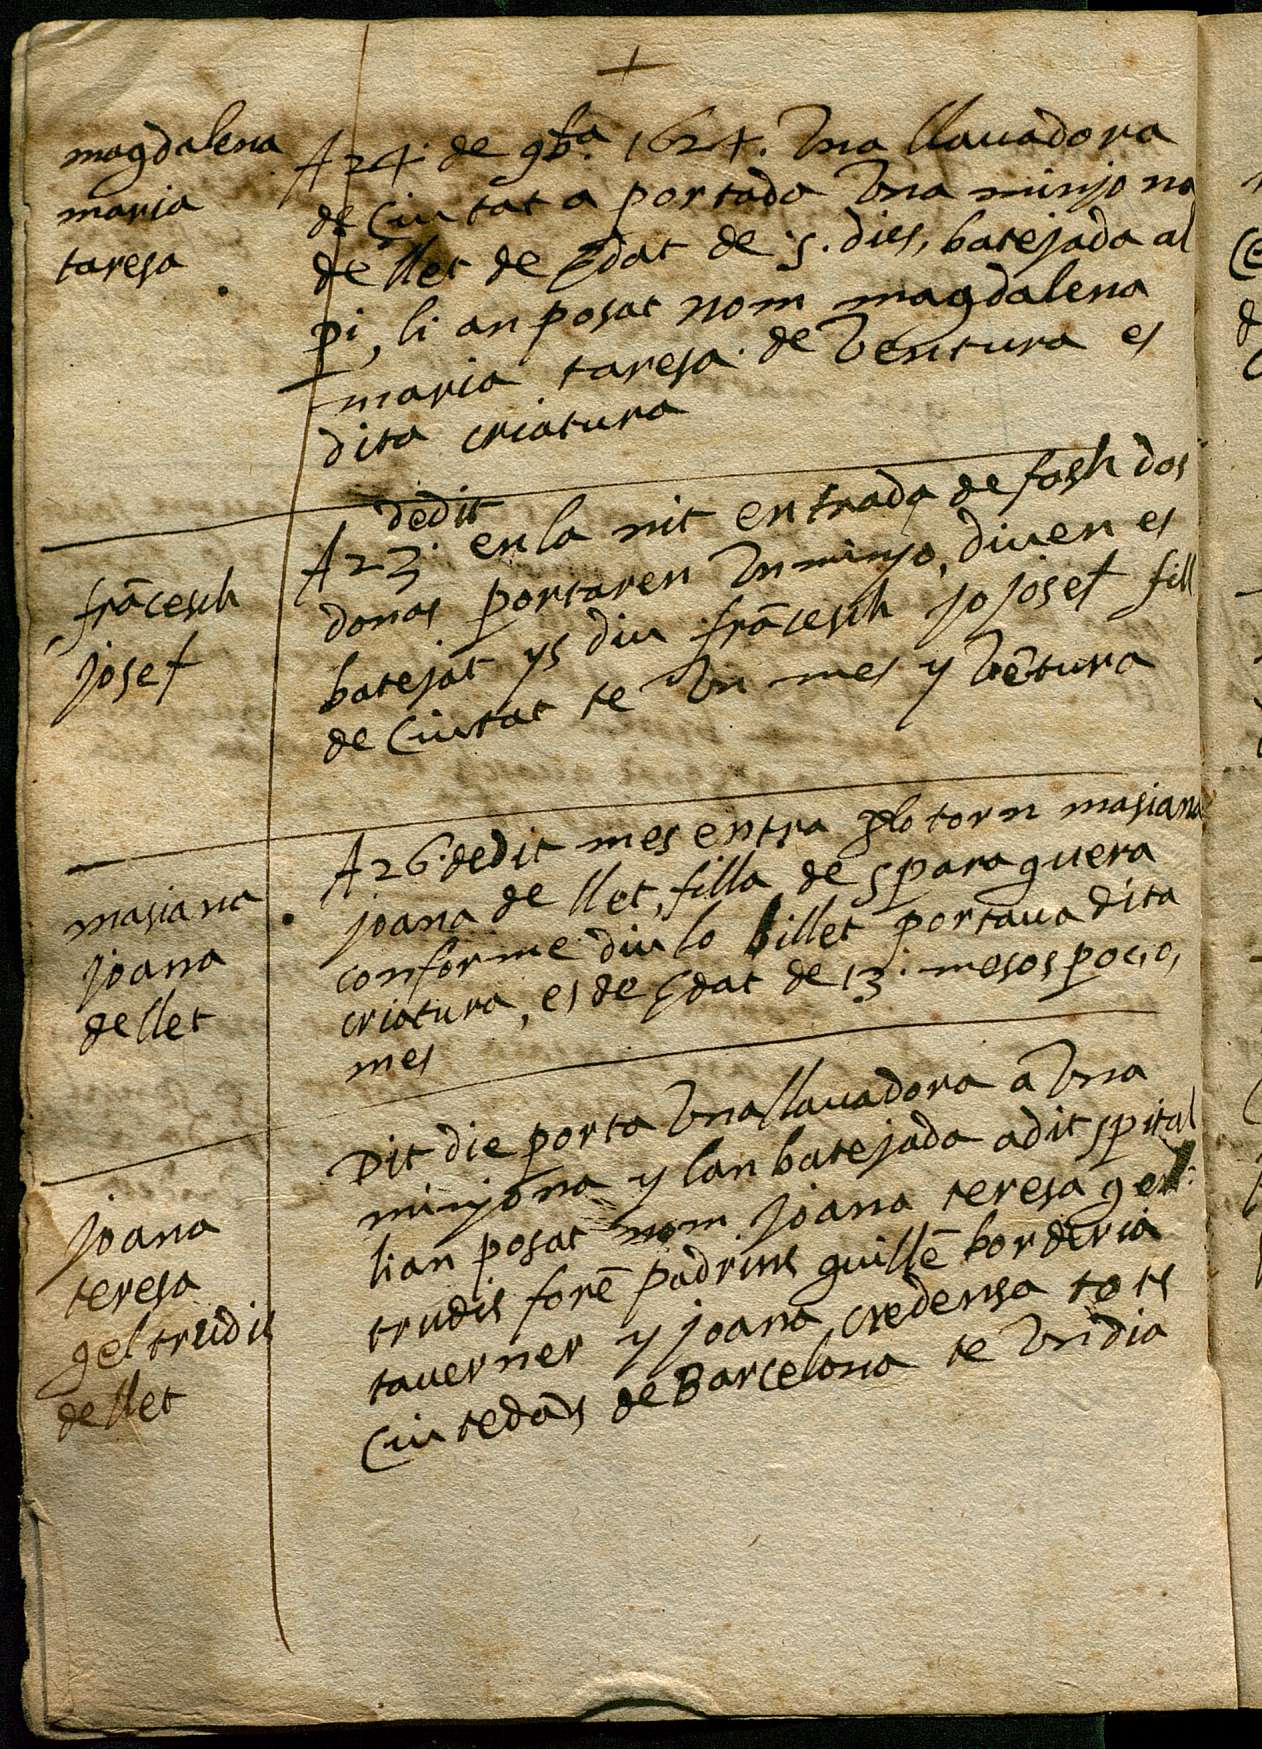 +
magdalena
maria
taresa
A 24 de 9bra 1624. Vna llauadora
de Ciutat a portado Vna minjona
de llet de Edat de 5. dies, batejada al
pi, li an posat nom magdalena
maria taresa de Ventura es
dita criatura
frãcesch
josef
A 23 dedit en la nit entrada de fosch dos
donas portaren Vn minjo, diuen es
batejat ys diu frãcesch jo josef fill
de Ciutat te Vn mes y Vẽtura
masiana
joana
de llet
A 26 dedit mes entra plo torn masiana
joana de llet, filla de sparaguera
conforme diu lo billet portaua dita
criatura, es de Edat de 13 mesos poc, o,
mes
joana
teresa
geltrudis
de llet
Dit die porta Vna llauadora a Vna
minjona y lan batejada a dit spital
li an posat nom joana teresa gel:
trudis forẽ padrins guillẽ borderia
tauerner y joana credensa tots
Ciutedans de Barcelona te Vn dia